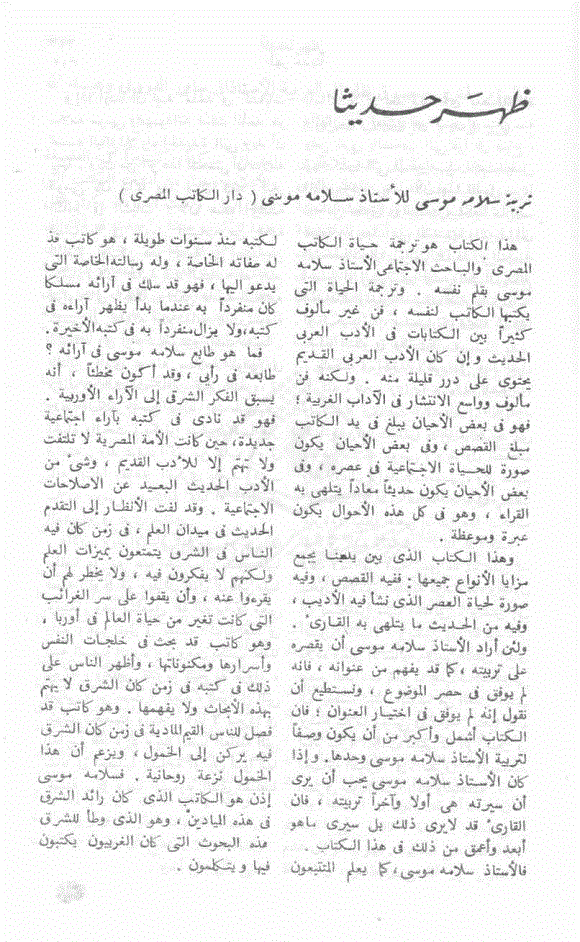 ظهر حديثا
تربية سلامه موسى للأستاذ سلامه موسى ( دار الكاتب المصرى )
هذا الكتاب هو ترجمة حياة الكاتب
المصرى والباحث الاجتماعى الأستاذ سلامه
موسى بقلم نفسه . وترجمة الحياة التى
يكتبها الكاتب لنفسه ، فن غير مألوف
كثيراً بين الكتابات فى الأدب العربى
الحديث وإن كان الأدب العربى القديم
يحتوى على درر قليلة منه . ولكنه فن
مألوف وواسع الانتشار فى الآداب الغربية ؛
فهو فى بعض الأحيان يبلغ فى يد الكاتب
مبلغ القصص ، وفى بعض الأحيان يكون
صورة للحياة الاجتماعية فى عصره ، وفى
بعض الأحيان يكون حديثاً معاداً يتلهى به
القراء ، وهو فى كل هذه الأحوال يكون
عبرة وموعظة .
وهذا الكتاب الذى بين يدينا يجمع
مزايا الأنواع جميعها : ففيه القصص ، وفيه
صورة لحياة العصر الذى نشأ فيه الأديب ،
وفيه من الحديث ما يتلهى به القارئ .
ولئن أراد الأستاذ سلامه موسى أن يقصره
على تربيته ، كما قد يفهم من عنوانه ، فانه
لم يوفق فى حصر الموضوع ، ونستطيع أن
نقول إنه لم يوفق فى اختيار العنوان ؛ فان
الكتاب أشمل وأكبر من أن يكون وصفاً
لتربية الأستاذ سلامه موسى وحدها. وإذا
كان الأستاذ سلامه موسى يحب أن يرى
أن سيرته هى أولا وآخراً تربيته ، فان
القارئ قد لايرى ذلك بل سيرى ماهو
أبعد وأعمق من ذلك فى هذا الكتاب .
فالأستاذ سلامه موسى، كما يعلم المتتبعون
لكتبه منذ سنوات طويلة ، هو كاتب فذ
له صفاته الخاصة ، وله رسالته الخاصة التى
يدعو اليها ، فهو قد سلك فى آرائه مسلكا
كان منفرداً به عندما بدأ يظهر آراءه فى
كتبه، ولا يزال منفرداً به فى كتبه الأخيرة.
فما هو طابع سلامه موسى فى آرائه ؟
طابعه فى رأيى ، وقد أكون مخطئاً ، أنه
يسبق الفكر الشرقى إلى الآراء الأوربية .
فهو قد نادى فى كتبه بآراء اجتماعية
جديدة، حين كانت الأمة المصرية لا تلتفت
ولا تهتم إلا للأدب القديم ، وشئ من
الأدب الحديث البعيد عن الاصلاحات
الاجتماعية . وقد لفت الأنظار إلى التقدم
الحديث فى ميدان العلم ، فى زمن كان فيه
الناس فى الشرق يتمتعون بميزات العلم
ولكنهم لا يفكرون فيه ، ولا يخطر لهم أن
يقرءوا عنه ، وأن يقفوا على سر الغرائب
التى كانت تغير من حياة العالم فى أوربا ،
وهو كاتب قد بحث فى خلجات النفس
وأسرارها ومكنوناتها ، وأظهر الناس على
ذلك فى كتبه فى زمن كان الشرق لا يهتم
بهذه الأبحاث ولا يفهمها . وهو كاتب قد
فصل للناس القيم المادية فى زمن كان الشرق
فيه يركن إلى الخمول ، ويزعم أن هذا
الخمول نزعة روحانية . فسلامه موسى
إذن هو الكاتب الذى كان رائد الشرق
فى هذه الميادين ، وهو الذى وطأ للشرق
هذه البحوث التى كان الغربيون يكتبون
فيها ويتكلمون .